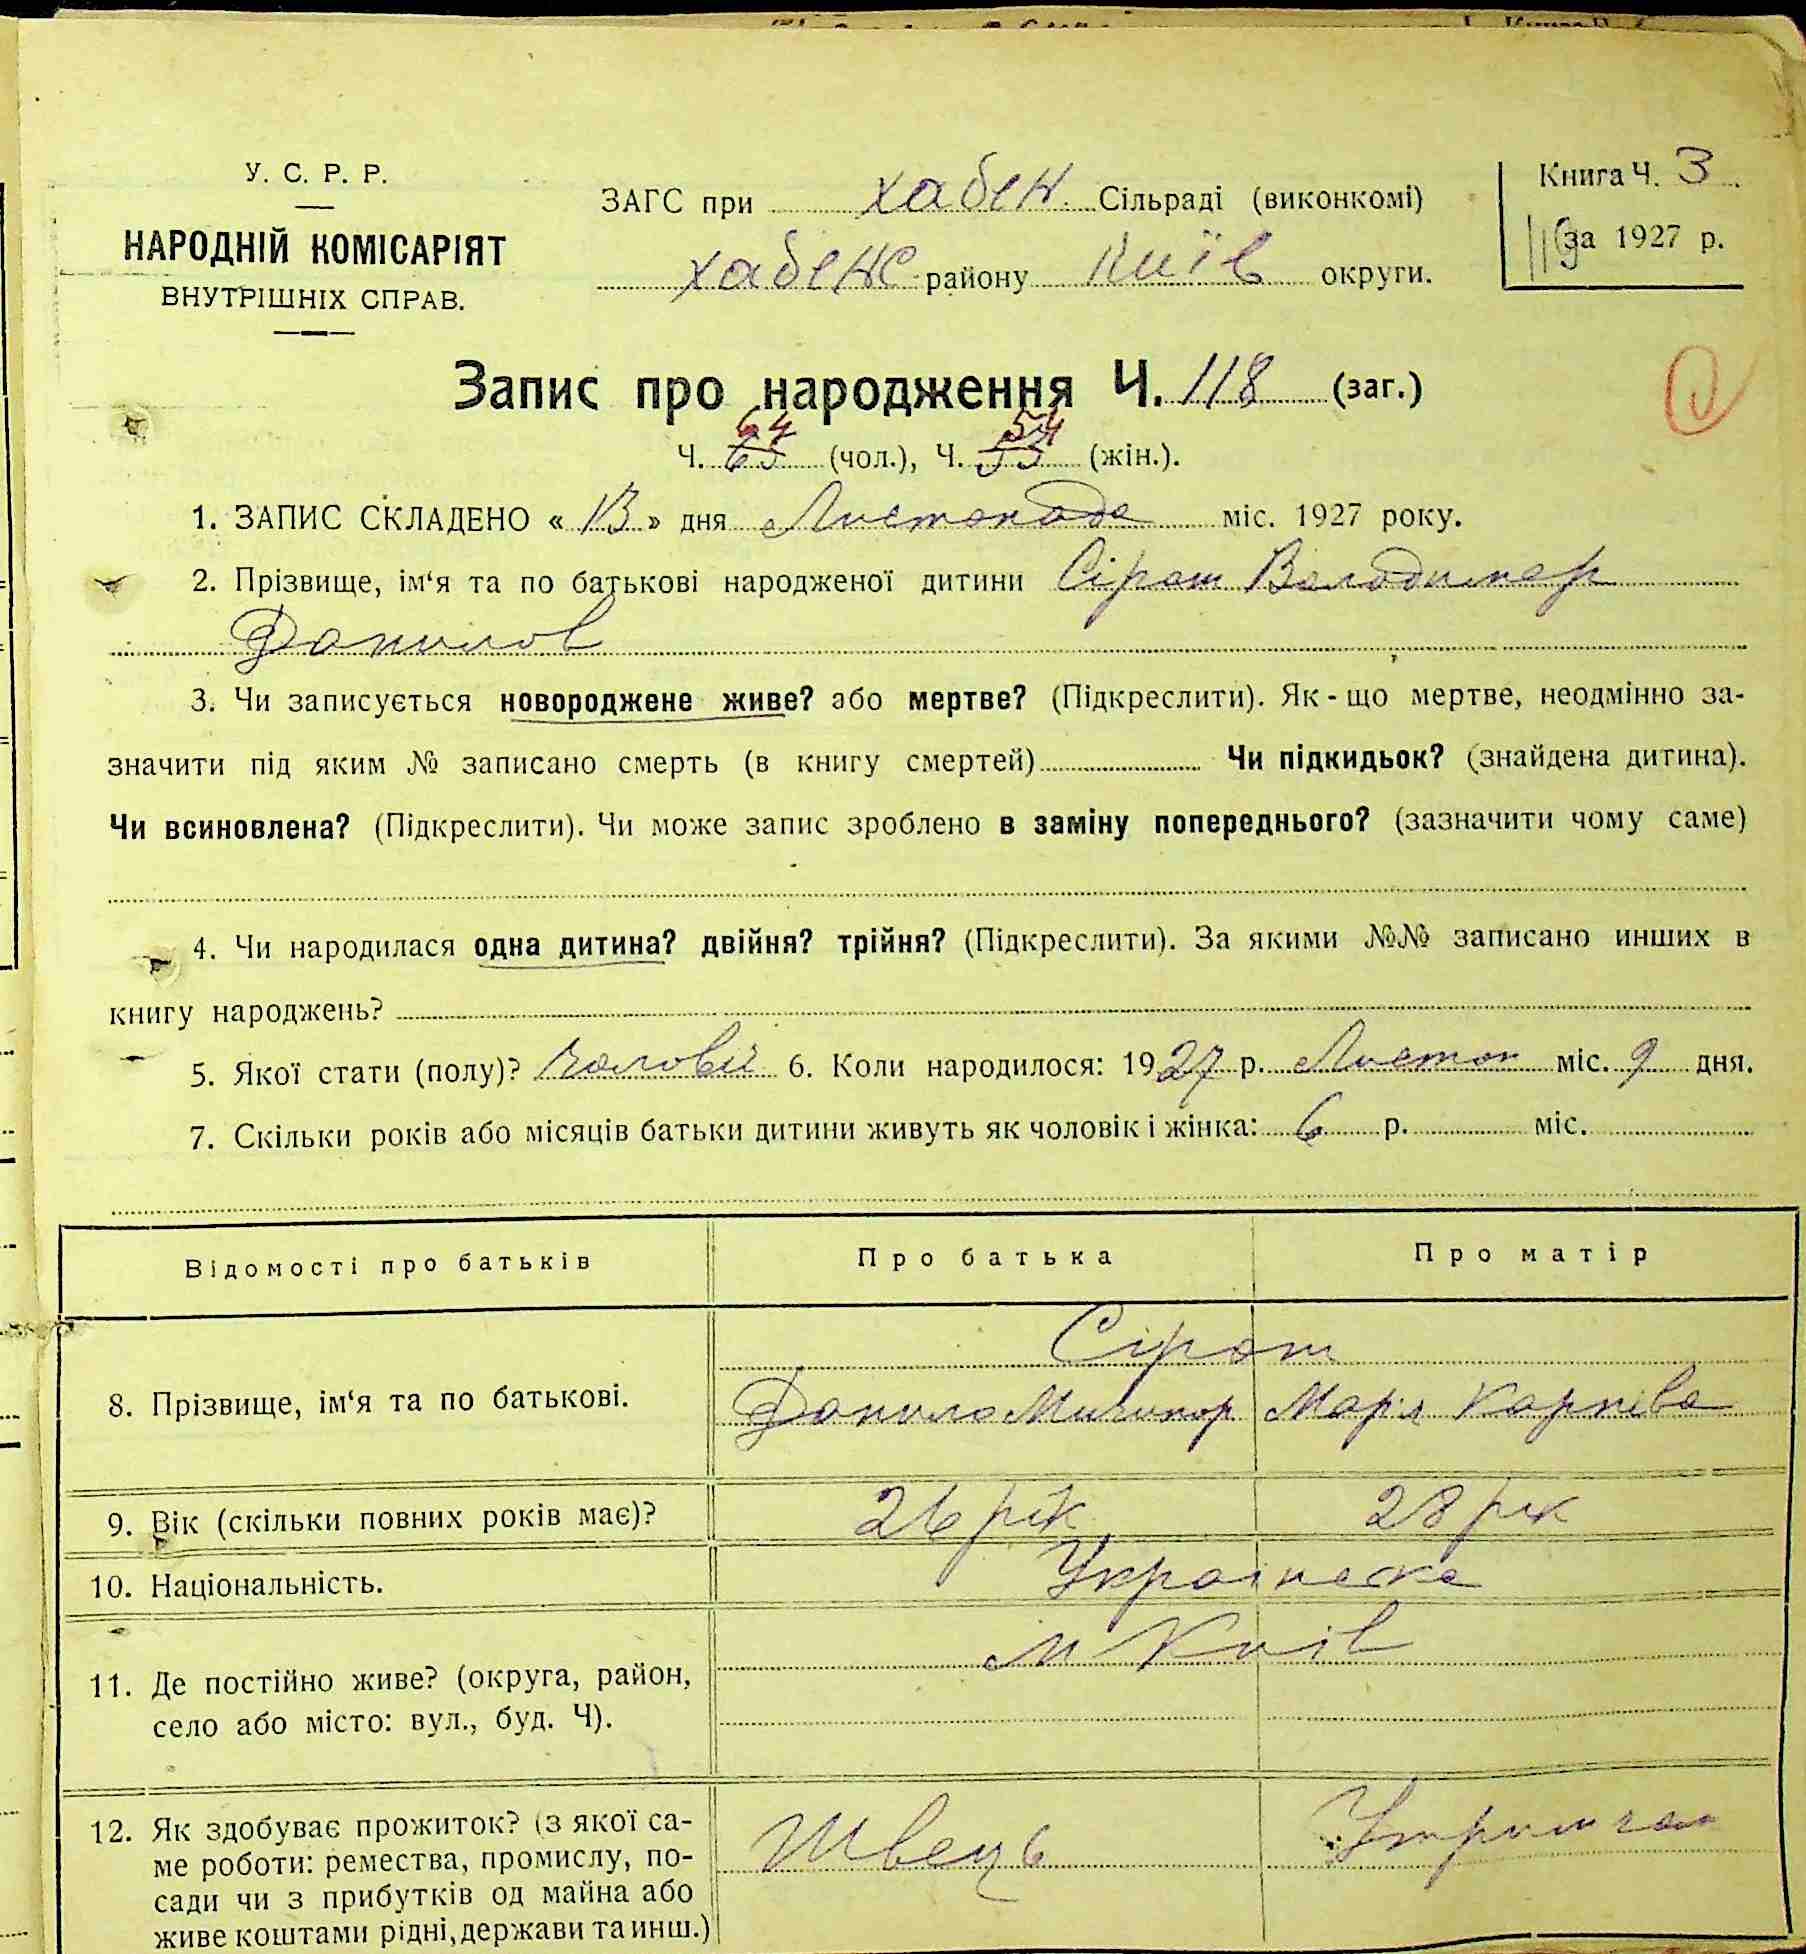 У. С. Р. Р.
НАРОДНІЙ КОМІСАРІЯТ
ВНУТРІШНІХ СПРАВ.
ЗАГС при хабен. Сільраді (виконкомі)
хабенс району Київ округи.
Книга Ч. 3
за 1927 р.
Запис про народження Ч. 118 (заг.)
64 54
Ч. 63 (чол.), Ч. 53 (жін.).
1. ЗАПИС СКЛАДЕНО « 13 » дня Листопада міс. 1927 року.
2. Прізвище, ім‘я та по батькові народженої дитини Сірош Володимер
Данилов
3. Чи записується новороджене живе? або мертве? (Підкреслити). Як-що мертве, неодмінно за-
значити під яким № записано смерть (в книгу смертей) Чи підкидьок? (знайдена дитина).
Чи всиновлена? (Підкреслити). Чи може запис зроблено в заміну попереднього? (зазначити чому саме)
4. Чи народилася одна дитина? двійня? трійня? (Підкреслити). За якими №№ записано инших в
книгу народжень?
5. Якої стати (полу)? чоловіч 6. Коли народилося: 1927 р. Листоп міс. 9 дня.
7. Скільки років або місяців батьки дитини живуть як чоловік і жінка: 6 р. міс.
Відомості про батьків Про батька Про матір
Сірош
8. Прізвище, ім‘я та по батькові. Данило Мичипор Марія Карпіва
9. Вік (скільки повних років має)? 26 рік 28 рік
10. Національність. Українська
м Київ
11. Де постійно живе? (округа, район,
село або місто: вул., буд. Ч).
12. Як здобуває прожиток? (з якої са- Швець Утримчан
ме роботи: ремества, промислу, по-
сади чи з прибутків од майна або
живе коштами рідні, держави та инш.)